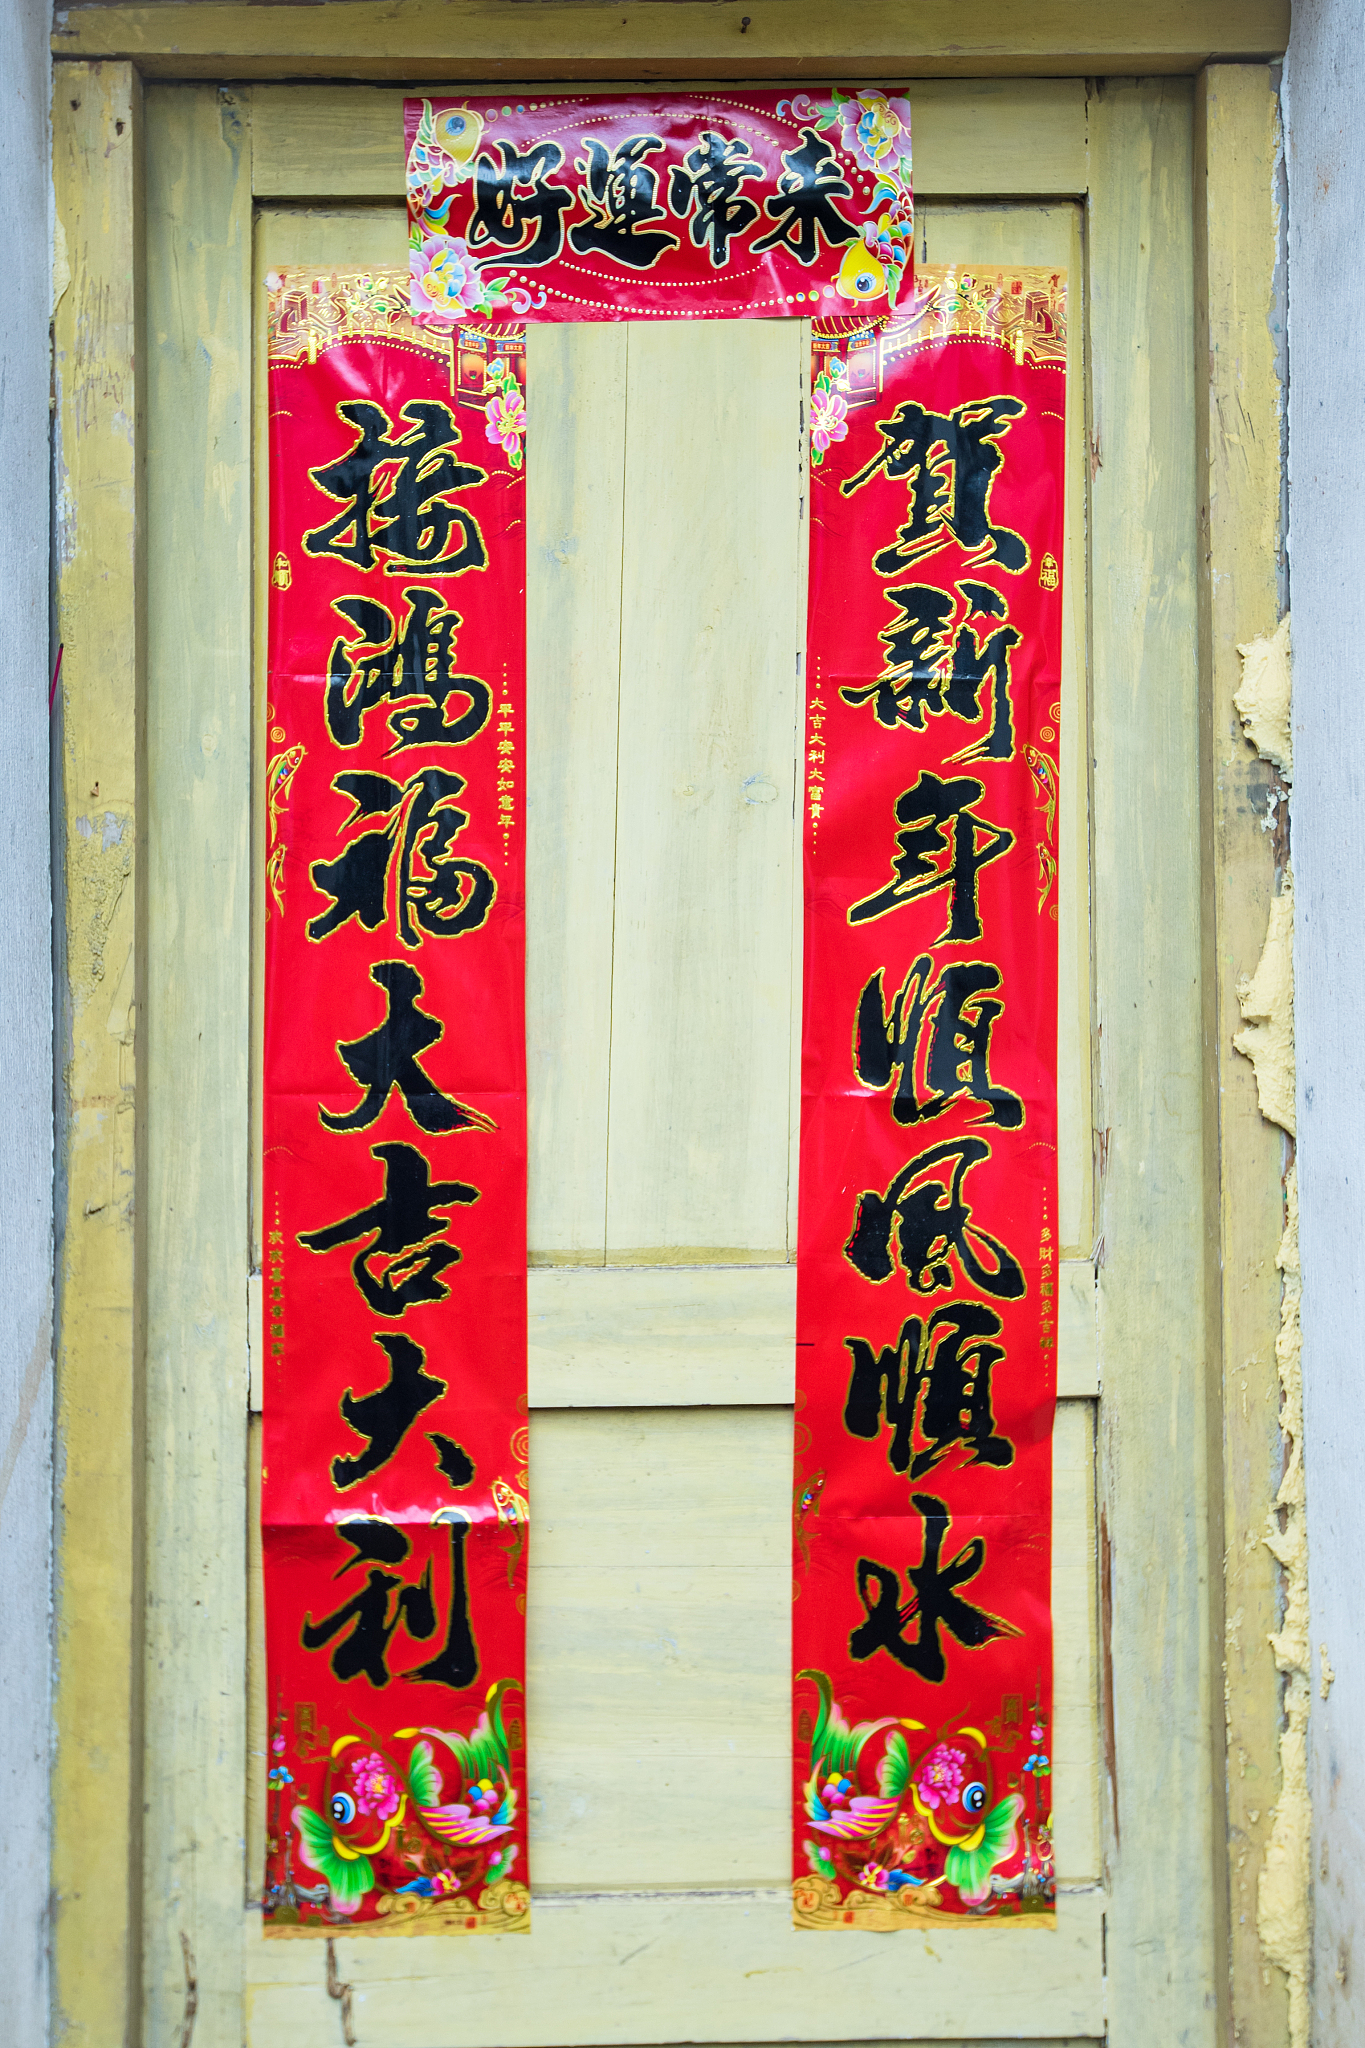 好運常来
賀新年順風順水
接鴻福大吉大利
大吉大利大富貴
平平安安如意年
多財多福多吉祥
欢欢喜喜幸福家
幸福
和順